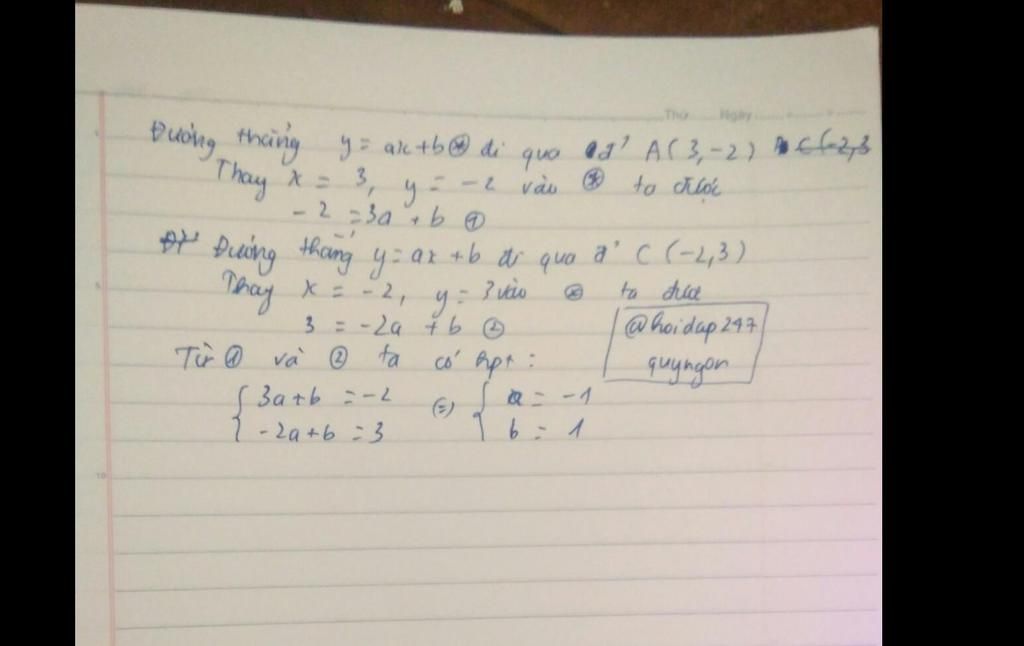 Thứ Ngày
Đường thẳng y = ax+b (*) đi qua đ' A(3,-2) C(-2,3
Thay x = 3, y = -2 vào (*) ta được
-2 = 3a + b ①
Đường thẳng y = ax + b đi qua đ' C (-2,3)
Thay x = -2, y = 3 vào (*) ta được
3 = -2a + b ②
@hoidap247
quyngon
Từ ① và ② ta có hpt:
{ 3a+b = -2 (=) { a = -1
{ -2a+b = 3 { b = 1